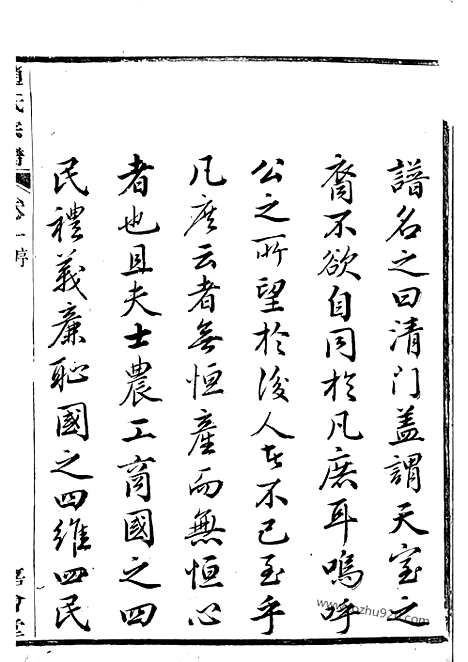 譜名之曰清门盖謂天室之
裔不欲自同於凡庶耳嗚呼
公之所望於後人者不已至乎
凡庶云者無恒産而無恒心
者也且夫士農工商國之四
民禮義廉恥國之四維四民
趙氏宗譜 卷一 序